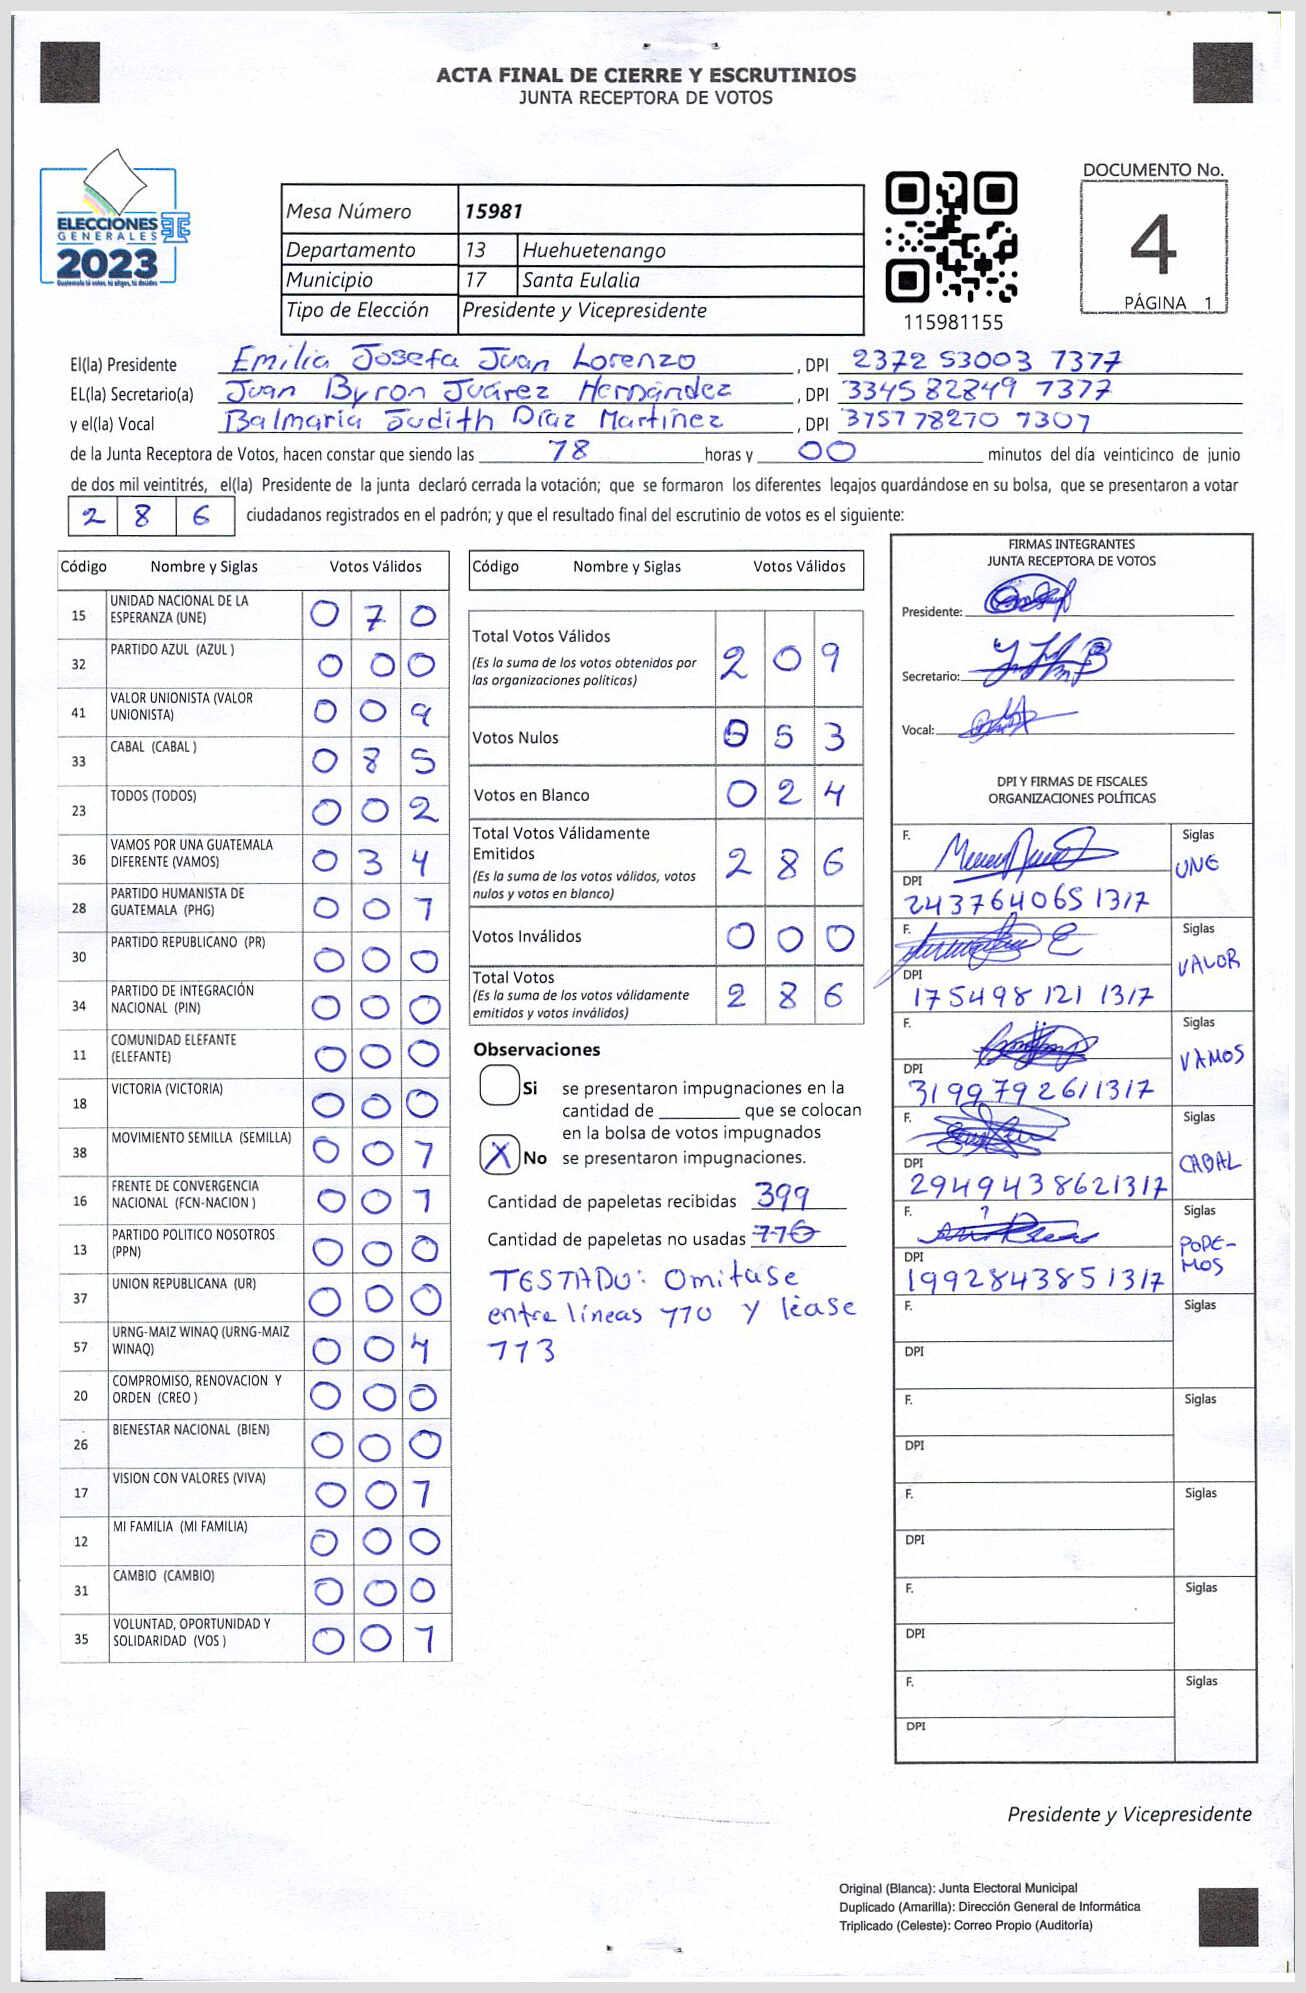 ACTA FINAL DE CIERRE Y ESCRUTINIOS
JUNTA RECEPTORA DE VOTOS
ELECCIONES
GENERALES
2023
Guatemala tú votas, tú eliges, tú decides
Mesa Número 15981
Departamento 13 Huehuetenango
Municipio 17 Santa Eulalia
Tipo de Elección Presidente y Vicepresidente
115981155
DOCUMENTO No.
4
PÁGINA 1
El(la) Presidente Emilia Josefa Juan Lorenzo, DPI 2372 53003 1317
EL(la) Secretario(a) Juan Byron Juárez Hernández, DPI 3345 82849 1317
y el(la) Vocal Balmaria Judith Díaz Martínez, DPI
de la Junta Receptora de Votos, hacen constar que siendo las 18 horas y 00 minutos del día veinticinco de junio
de dos mil veintitrés, el(la) Presidente de la junta declaró cerrada la votación; que se formaron los diferentes legajos quardándose en su bolsa, que se presentaron a votar
2 8 6 ciudadanos registrados en el padrón; y que el resultado final del escrutinio de votos es el siguiente:
Código Nombre y Siglas Votos Válidos
15 UNIDAD NACIONAL DE LA ESPERANZA (UNE) 0 7 0
32 PARTIDO AZUL (AZUL ) 0 0 0
41 VALOR UNIONISTA (VALOR UNIONISTA) 0 0 9
33 CABAL (CABAL ) 0 8 5
23 TODOS (TODOS) 0 0 2
36 VAMOS POR UNA GUATEMALA DIFERENTE (VAMOS) 0 3 4
28 PARTIDO HUMANISTA DE GUATEMALA (PHG) 0 0 1
30 PARTIDO REPUBLICANO (PR) 0 0 0
34 PARTIDO DE INTEGRACIÓN NACIONAL (PIN) 0 0 0
11 COMUNIDAD ELEFANTE (ELEFANTE) 0 0 0
18 VICTORIA (VICTORIA) 0 0 0
38 MOVIMIENTO SEMILLA (SEMILLA) 0 0 1
16 FRENTE DE CONVERGENCIA NACIONAL (FCN-NACION ) 0 0 1
13 PARTIDO POLITICO NOSOTROS (PPN) 0 0 0
37 UNION REPUBLICANA (UR) 0 0 0
57 URNG-MAIZ WINAQ (URNG-MAIZ WINAQ) 0 0 4
20 COMPROMISO, RENOVACION Y ORDEN (CREO ) 0 0 0
26 BIENESTAR NACIONAL (BIEN) 0 0 0
17 VISION CON VALORES (VIVA) 0 0 1
12 MI FAMILIA (MI FAMILIA) 0 0 0
31 CAMBIO (CAMBIO) 0 0 0
35 VOLUNTAD, OPORTUNIDAD Y SOLIDARIDAD (VOS ) 0 0 1
Código Nombre y Siglas Votos Válidos
Total Votos Válidos 2 0 9
(Es la suma de los votos obtenidos por
las organizaciones políticas)
Votos Nulos 0 5 3
Votos en Blanco 0 2 4
Total Votos Válidamente
Emitidos 2 8 6
(Es la suma de los votos válidos, votos
nulos y votos en blanco)
Votos Inválidos 0 0 0
Total Votos 2 8 6
(Es la suma de los votos válidamente
emitidos y votos inválidos)
Observaciones
Si se presentaron impugnaciones en la
cantidad de ________ que se colocan
en la bolsa de votos impugnados
X No se presentaron impugnaciones.
Cantidad de papeletas recibidas 399
Cantidad de papeletas no usadas 110
TESTADO: Omitase
entre líneas 110 y léase
113
FIRMAS INTEGRANTES
JUNTA RECEPTORA DE VOTOS
Presidente:
Secretario:
Vocal:
DPI Y FIRMAS DE FISCALES
ORGANIZACIONES POLÍTICAS
F. Siglas UNE
DPI 243764065 1317
F. Siglas VALOR
DPI 175498 121 1317
F. Siglas VAMOS
DPI 3199792611317
F. Siglas CABAL
DPI 2949438621317
F. Siglas PODE-
MOS
DPI 1992843851317
F. Siglas
DPI
F. Siglas
DPI
F. Siglas
DPI
F. Siglas
DPI
F. Siglas
DPI
Presidente y Vicepresidente
Original (Blanca): Junta Electoral Municipal
Duplicado (Amarilla): Dirección General de Informática
Triplicado (Celeste): Correo Propio (Auditoría)